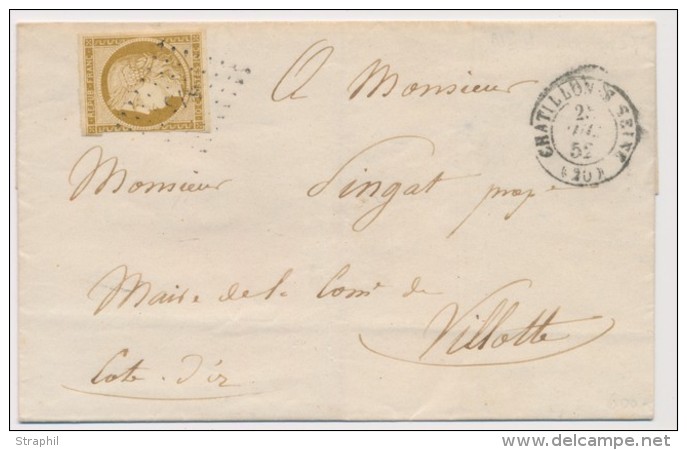 REPUB. FRANC.
A Monsieur
CHATILLON-S-SEINE
52
(20)
Monsieur Lingat prop.
Maire de la Com.e de
Villotte
Cote-d'or
Straphil
www.delcampe.net